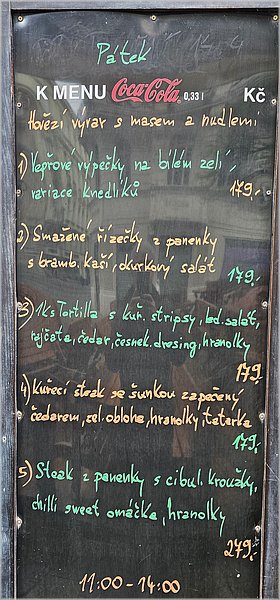 Pátek
K MENU Coca-Cola 0,33 l Kč
Hovězí vývar s masem a nudlemi
1) Vepřové výpečky na bílém zelí,
variace knedlíků 179,-
2) Smažené řízečky z panenky
s bramb. kaší, okurkový salát
179,-
3) 1ks Tortilla s kuř. stripsy, led. salát,
rajčata, čedar, česnek. dresing, hranolky
179,-
4) Kuřecí steak se šunkou zapečený
čedarem, zel. obloha, hranolky, tatarka
179,-
5) Steak z panenky s cibul. kroužky,
chilli sweet omáčka, hranolky
279,-
11:00-14:00